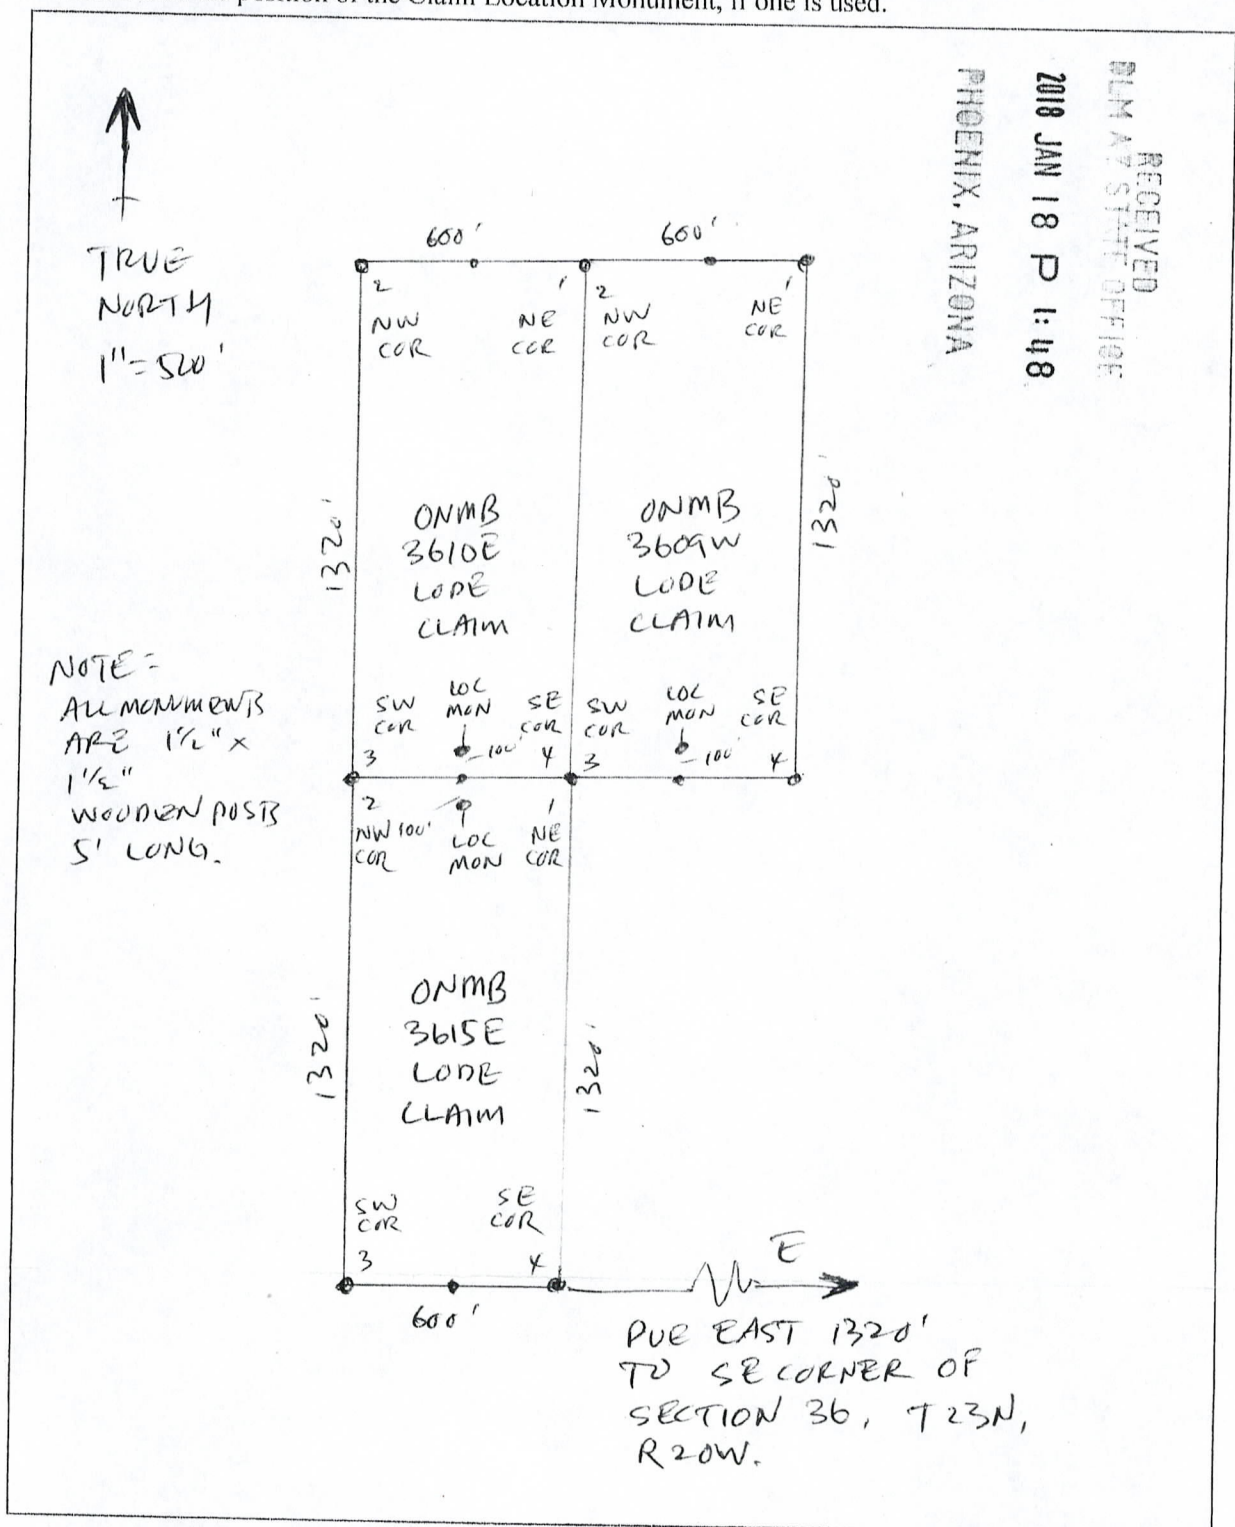 position of the Claim Location Monument, if one is used.
RECEIVED
BLM AZ STATE OFFICE
2018 JAN 18 P 1:48
PHOENIX, ARIZONA
TRUE
NORTH
1" = 500'
600'
600'
2
NW
COR
1
NE
COR
2
NW
COR
1
NE
COR
1320'
ONMB
3610E
LODE
CLAIM
ONMB
3609W
LODE
CLAIM
1320'
NOTE =
ALL MONUMENTS
ARE 1 1/2" x
1 1/2"
WOODEN POSTS
5' LONG.
SW
COR
3
LOC
MON
100'
SE
COR
4
SW
COR
3
LOC
MON
100'
SE
COR
4
2
NW 100'
COR
LOC
MON
1
NE
COR
1320'
ONMB
3615E
LODE
CLAIM
1320'
SW
COR
3
SE
COR
4
600'
E
DUE EAST 1320'
TO SE CORNER OF
SECTION 36, T23N,
R20W.